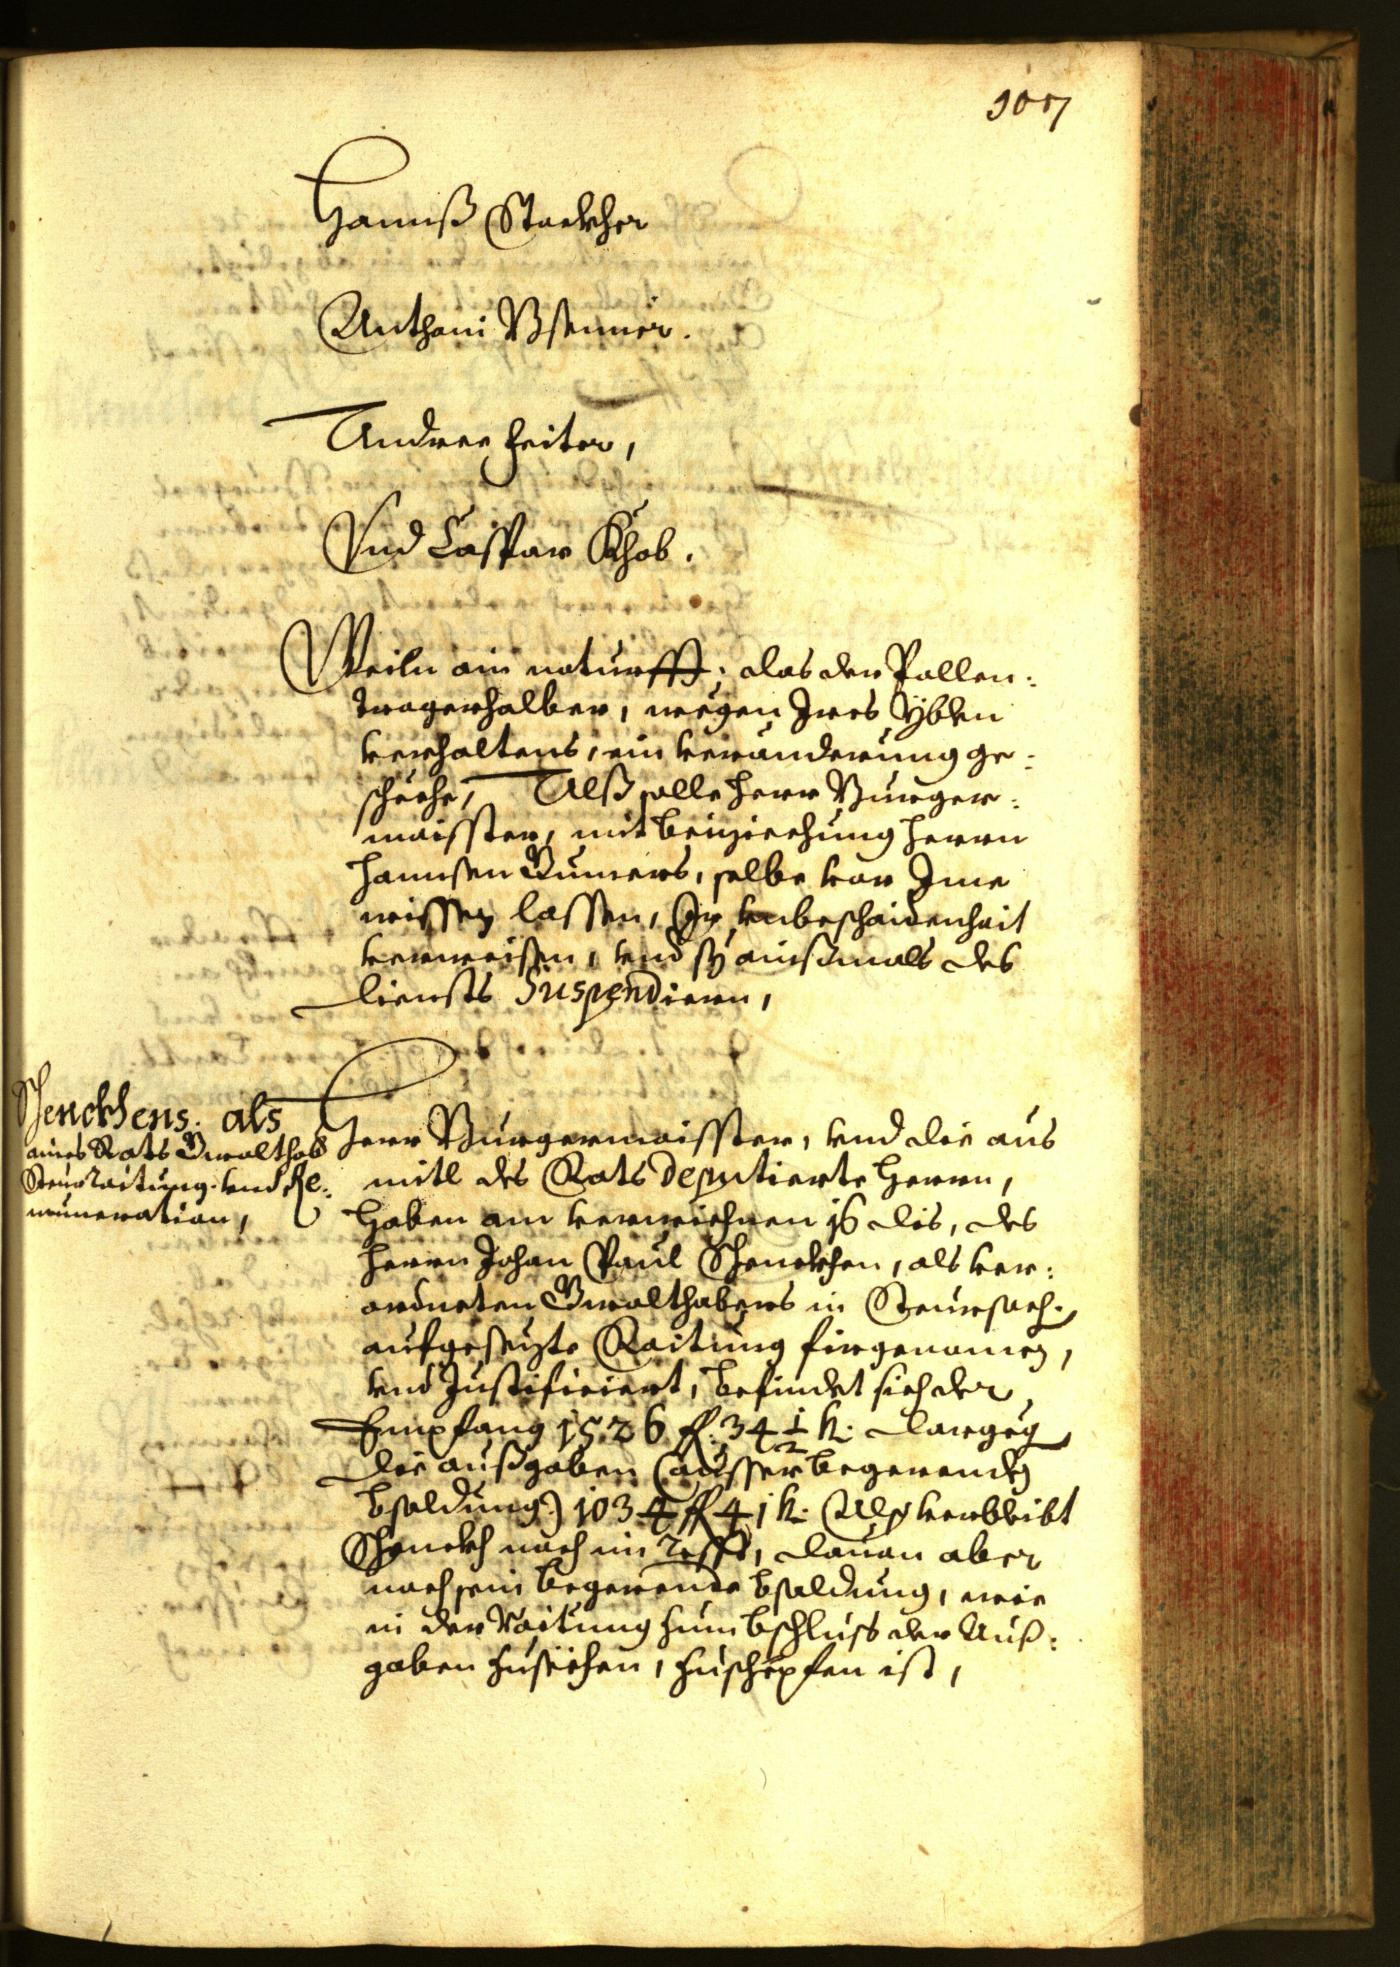 107
Hannß Stackher
Anthoni Vsenner.
Andree Heiter,
Vnd Caspar Khob.
Weiln ain noturfft, das der Pallen¬
tragerhalber, wegen Ires Yblen
verhaltens, ein veränderung ge¬
scheche, Alß solle Herr Burger¬
maisster, mit beiziechung Herrn
Hannsen Rumers, selbe vor Ime
wissen lassen, Ir vnbeschaidenhait
verweisen, vnd sy ainßmals des
diensts Suspendiern,
Schenckhens. als
aines Rats Gwalthab
Steurraitung. vnd Re¬
muneration,
Herr Burgermaisster, vnd die aus
mitl des Rats Deputierte Herrn,
haben am verwichnen 16 dis, des
Herrn Johan Paul Schenckhen, als ver¬
ordneten Gwalthabers in Steursach.
aufgesezte Raitung firgenomen,
vnd Justificiert, befindet sich der
Empfang 1526 fl. 34 1/2 k. dargeg
die außgaben (ausser begerenden
bsoldung) 1034 fl 41 k. Also verbleibt
Schenckh noch im Resst, dauon aber
noch sein begerende bsoldung, wie
in der Raitung zum bschluss der Auß¬
gaben zusechen, zuschöpfen ist,